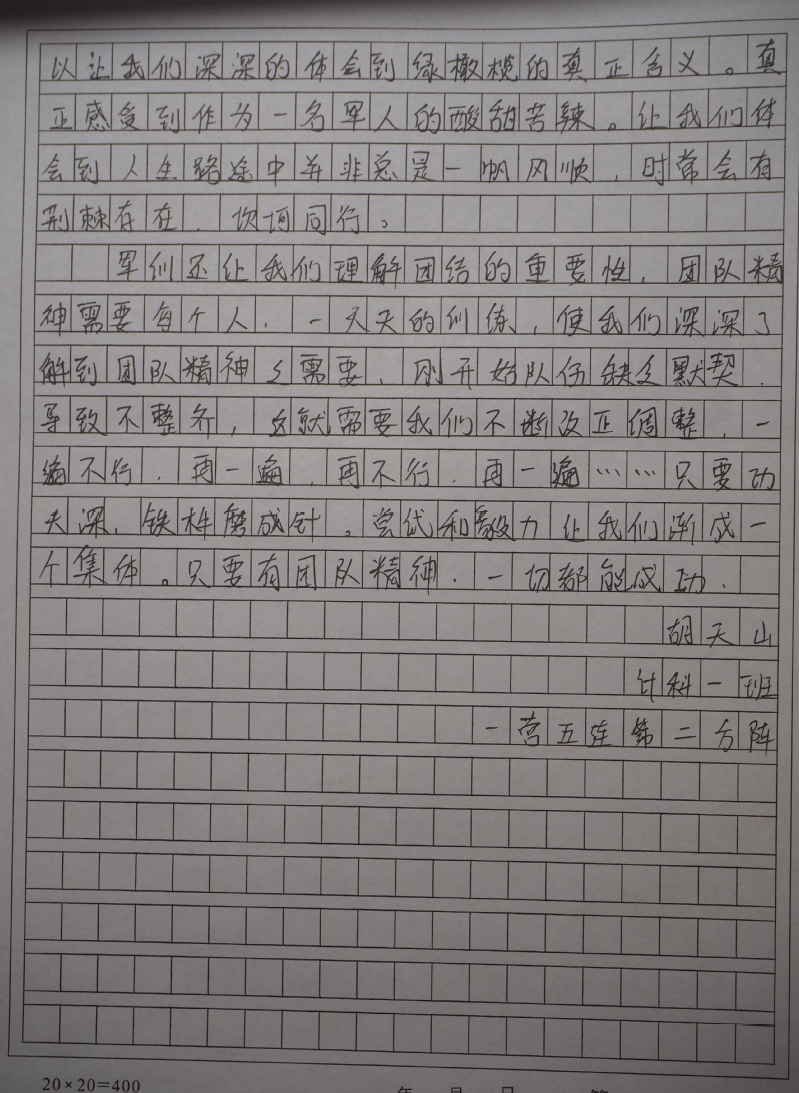 以让我们深深的体会到绿橄榄的真正含义。真
正感受到作为一名军人的酸甜苦辣。让我们体
会到人生路途中并非总是一帆风顺，时常会有
荆棘存在，坎坷同行。
军训还让我们理解团结的重要性，团队精
神需要每个人，一天天的训练，使我们深深了
解到团队精神之需要，刚开始队伍缺乏默契，
导致不整齐，这就需要我们不断改正调整，一
遍不行，再一遍，再不行，再一遍……只要功
夫深，铁杵磨成针。尝试和毅力让我们渐成一
个集体。只要有团队精神，一切都能成功.
胡天山
计科一班
一营五连第二方阵
20×20=400
年 月 日 第